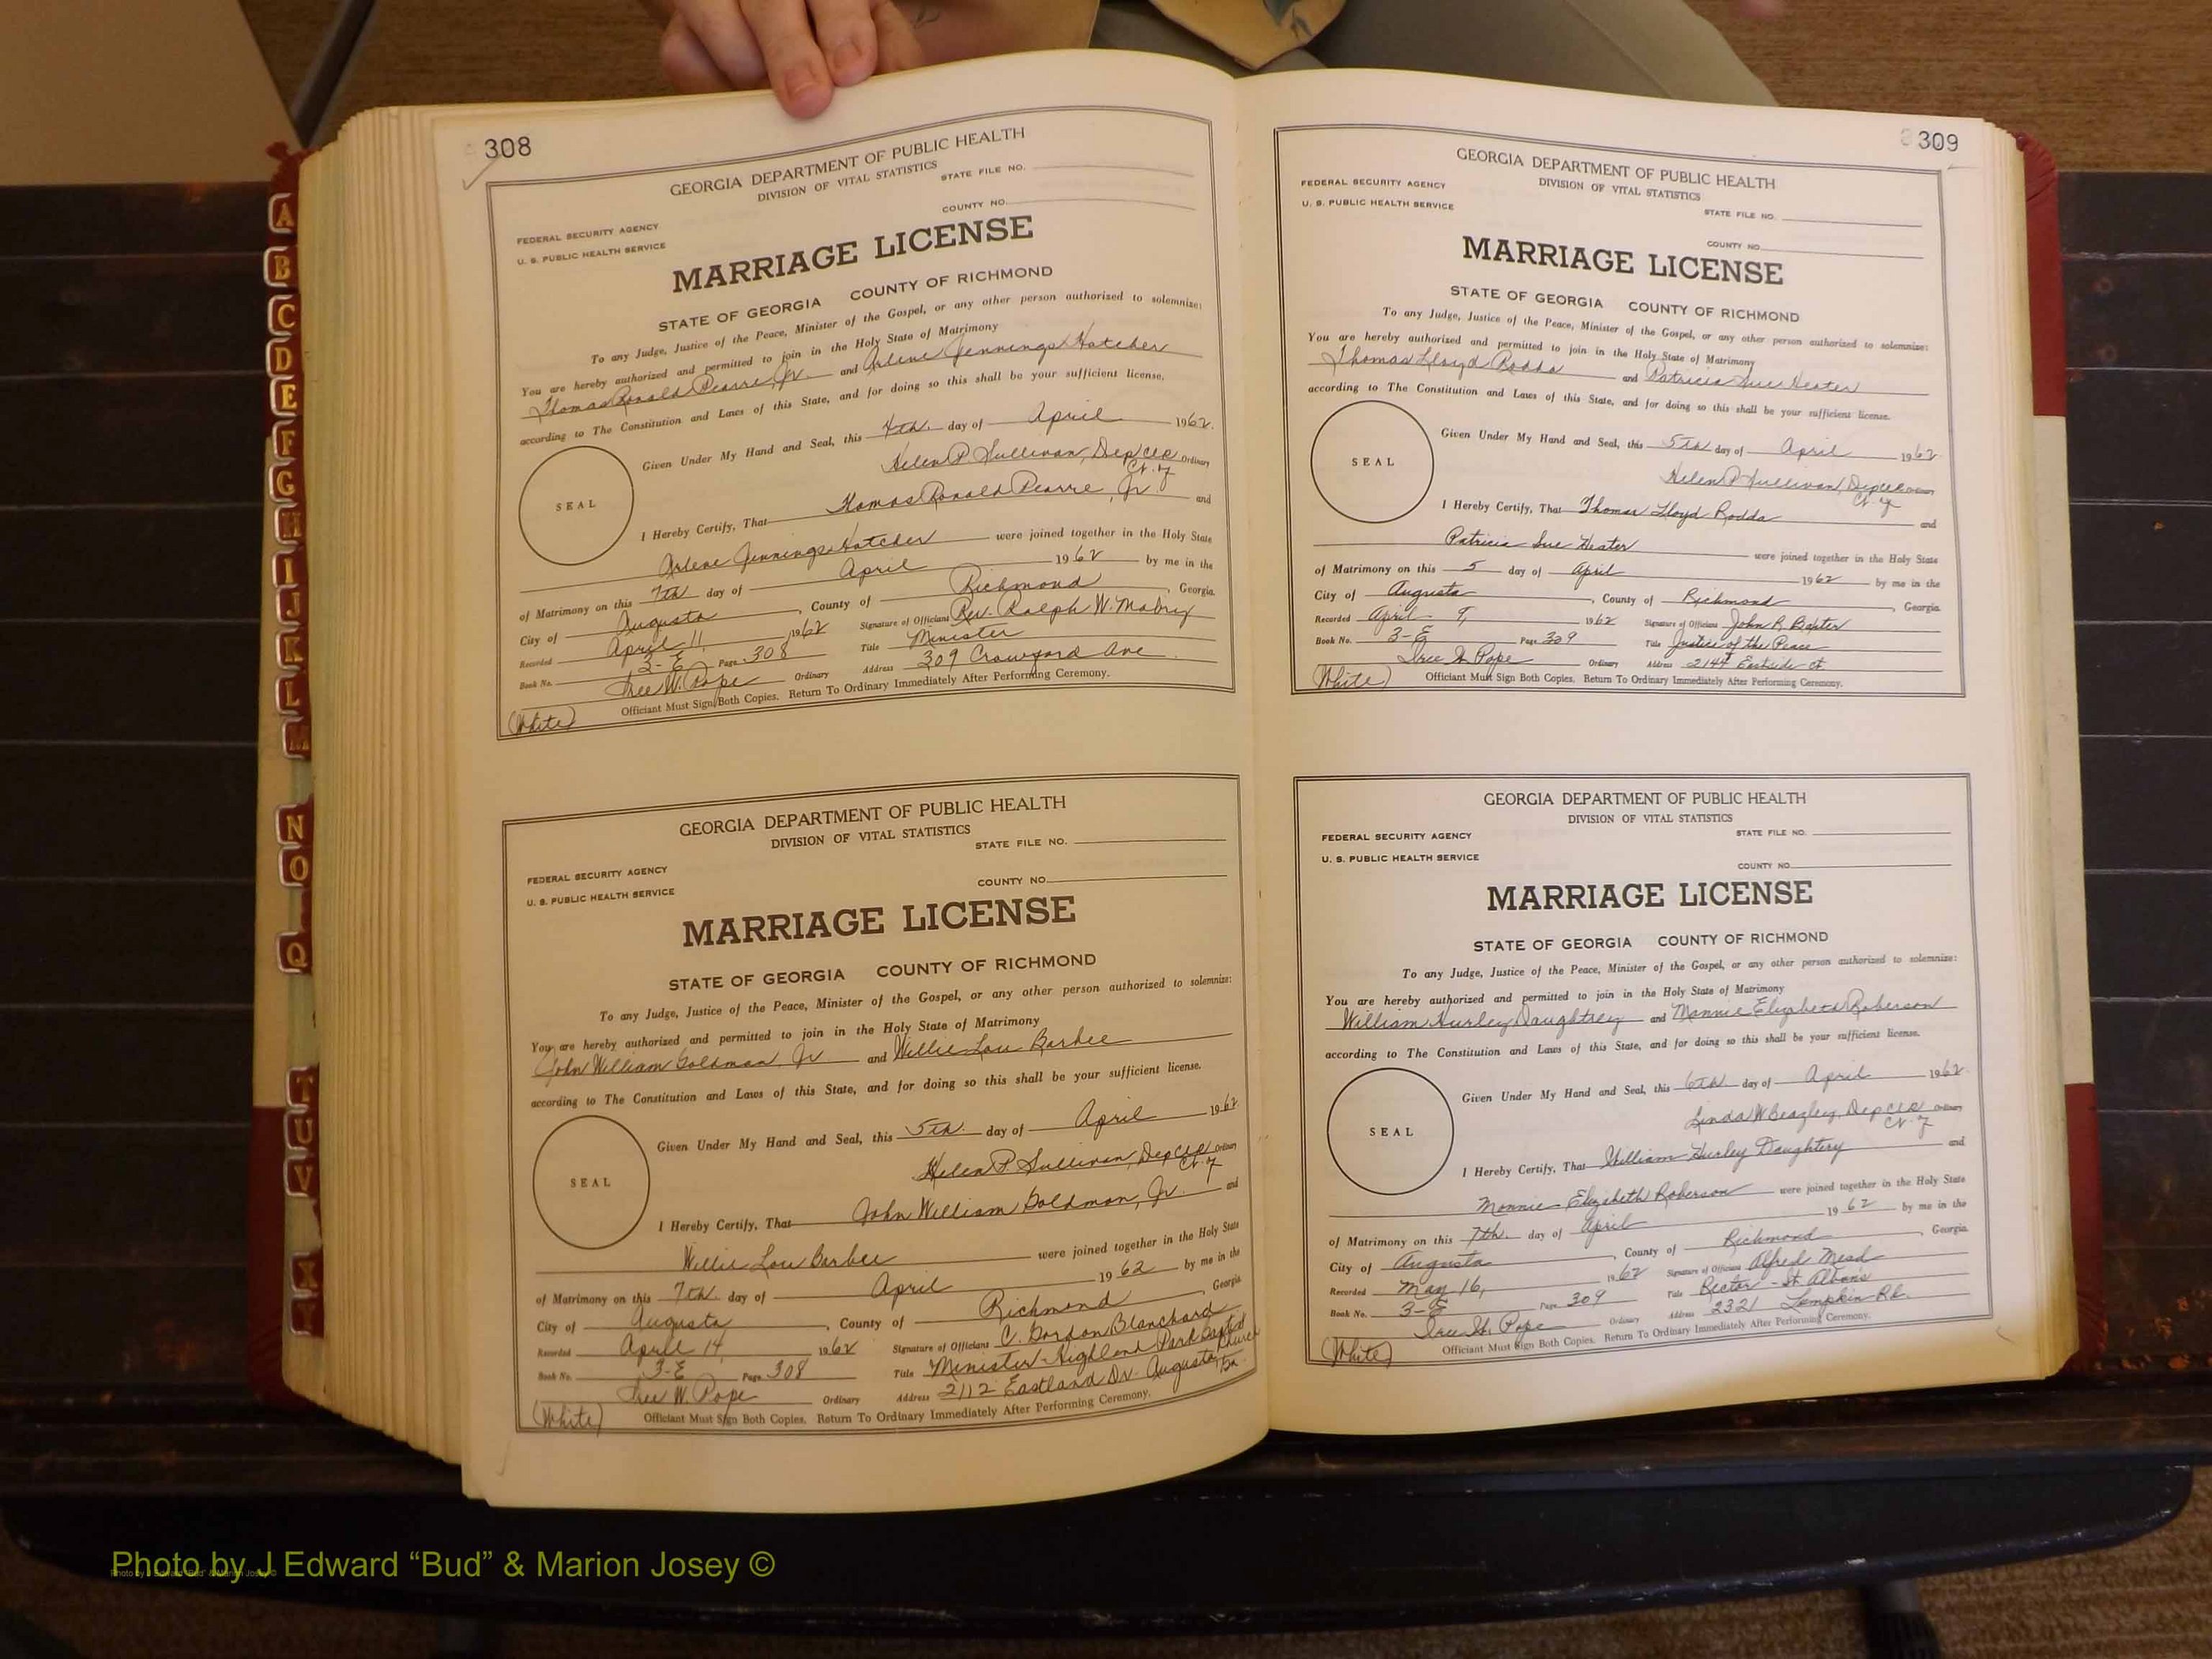 308
GEORGIA DEPARTMENT OF PUBLIC HEALTH
DIVISION OF VITAL STATISTICS
STATE FILE NO.
COUNTY NO.
FEDERAL SECURITY AGENCY
U. S. PUBLIC HEALTH SERVICE
MARRIAGE LICENSE
STATE OF GEORGIA COUNTY OF RICHMOND
To any Judge, Justice of the Peace, Minister of the Gospel, or any other person authorized to solemnize:
You are hereby authorized and permitted to join in the Holy State of Matrimony
Thomas Ronald Pearre, Jr. and Arlene Jennings Hatcher
according to The Constitution and Laws of this State, and for doing so this shall be your sufficient license.
Given Under My Hand and Seal, this 4th. day of April 1962.
Helen P. Sullivan, Dep Clk Ordinary
SEAL
I Hereby Certify, That Thomas Ronald Pearre, Jr. and
Arlene Jennings Hatcher were joined together in the Holy State
of Matrimony on this 7th day of April 1962 by me in the
City of Augusta, County of Richmond, Georgia.
Recorded April 11, 1962 Signature of Officiant Rev. Ralph W. Mabry
Book No. 3-E Page 308 Title Minister
Tree W. Pope Ordinary Address 309 Crawford Ave
(White) Officiant Must Sign Both Copies. Return To Ordinary Immediately After Performing Ceremony.
GEORGIA DEPARTMENT OF PUBLIC HEALTH
DIVISION OF VITAL STATISTICS
STATE FILE NO.
FEDERAL SECURITY AGENCY
COUNTY NO.
U. S. PUBLIC HEALTH SERVICE
MARRIAGE LICENSE
STATE OF GEORGIA COUNTY OF RICHMOND
To any Judge, Justice of the Peace, Minister of the Gospel, or any other person authorized to solemnize:
You are hereby authorized and permitted to join in the Holy State of Matrimony
John William Goldman, Jr. and Willie Lou Barbee
according to The Constitution and Laws of this State, and for doing so this shall be your sufficient license.
Given Under My Hand and Seal, this 5th. day of April 1962
Helen P. Sullivan, Dep Clk Ordinary
SEAL
I Hereby Certify, That John William Goldman, Jr. and
Willie Lou Barbee were joined together in the Holy State
of Matrimony on this 7th. day of April 1962 by me in the
City of Augusta, County of Richmond, Georgia
Recorded April 14, 1962 Signature of Officiant C. Gordon Blanchard
Book No. 3-E Page 308 Title Minister-Highland Park Baptist Church
Tree W. Pope Ordinary Address 2112 Eastland Dr. Augusta, Ga.
(White) Officiant Must Sign Both Copies. Return To Ordinary Immediately After Performing Ceremony.
309
GEORGIA DEPARTMENT OF PUBLIC HEALTH
FEDERAL SECURITY AGENCY
DIVISION OF VITAL STATISTICS
U. S. PUBLIC HEALTH SERVICE
STATE FILE NO.
COUNTY NO.
MARRIAGE LICENSE
STATE OF GEORGIA COUNTY OF RICHMOND
To any Judge, Justice of the Peace, Minister of the Gospel, or any other person authorized to solemnize:
You are hereby authorized and permitted to join in the Holy State of Matrimony
Thomas Lloyd Rodda and Patricia Sue Heater
according to The Constitution and Laws of this State, and for doing so this shall be your sufficient license.
Given Under My Hand and Seal, this 5th day of April 1962
Helen P. Sullivan, Dep Clk Ordinary
SEAL
I Hereby Certify, That Thomas Lloyd Rodda and
Patricia Sue Heater were joined together in the Holy State
of Matrimony on this 5 day of April 1962 by me in the
City of Augusta, County of Richmond, Georgia
Recorded April 9, 1962 Signature of Officiant John R. Baxter
Book No. 3-E Page 309 Title Justice of the Peace
Pope Ordinary Address 2144 Eastside Ct
(White) Officiant Must Sign Both Copies. Return To Ordinary Immediately After Performing Ceremony.
GEORGIA DEPARTMENT OF PUBLIC HEALTH
DIVISION OF VITAL STATISTICS
FEDERAL SECURITY AGENCY
STATE FILE NO.
U. S. PUBLIC HEALTH SERVICE
COUNTY NO.
MARRIAGE LICENSE
STATE OF GEORGIA COUNTY OF RICHMOND
To any Judge, Justice of the Peace, Minister of the Gospel, or any other person authorized to solemnize:
You are hereby authorized and permitted to join in the Holy State of Matrimony
William Hurley Daughtrey and Monnie Elizabeth Roberson
according to The Constitution and Laws of this State, and for doing so this shall be your sufficient license.
Given Under My Hand and Seal, this 6th day of April 1962
Linda W Beazley, Dep Clk Ordinary
SEAL
I Hereby Certify, That William Hurley Daughtery and
Monnie Elizabeth Roberson were joined together in the Holy State
of Matrimony on this 7th. day of April 1962 by me in the
City of Augusta, County of Richmond, Georgia.
Recorded May 16, 1962 Signature of Officiant Alfred Mead
Book No. 3-E Page 309 Title Rector - St. Albans
Pope Ordinary Address 2321 Lumpkin Rd.
(White) Officiant Must Sign Both Copies. Return To Ordinary Immediately After Performing Ceremony.
A
B
C
D
E
F
G
H
I
J
K
L
M
N
O
Q
T
U
V
X
Y
Photo by J Edward “Bud” & Marion Josey ©
Photo by J Edward “Bud” & Marion Josey ©